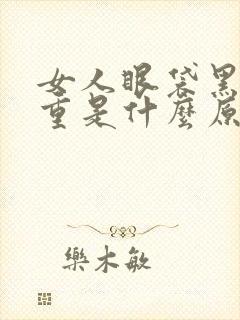 女人眼袋黑
重是什麼原
樂木敏